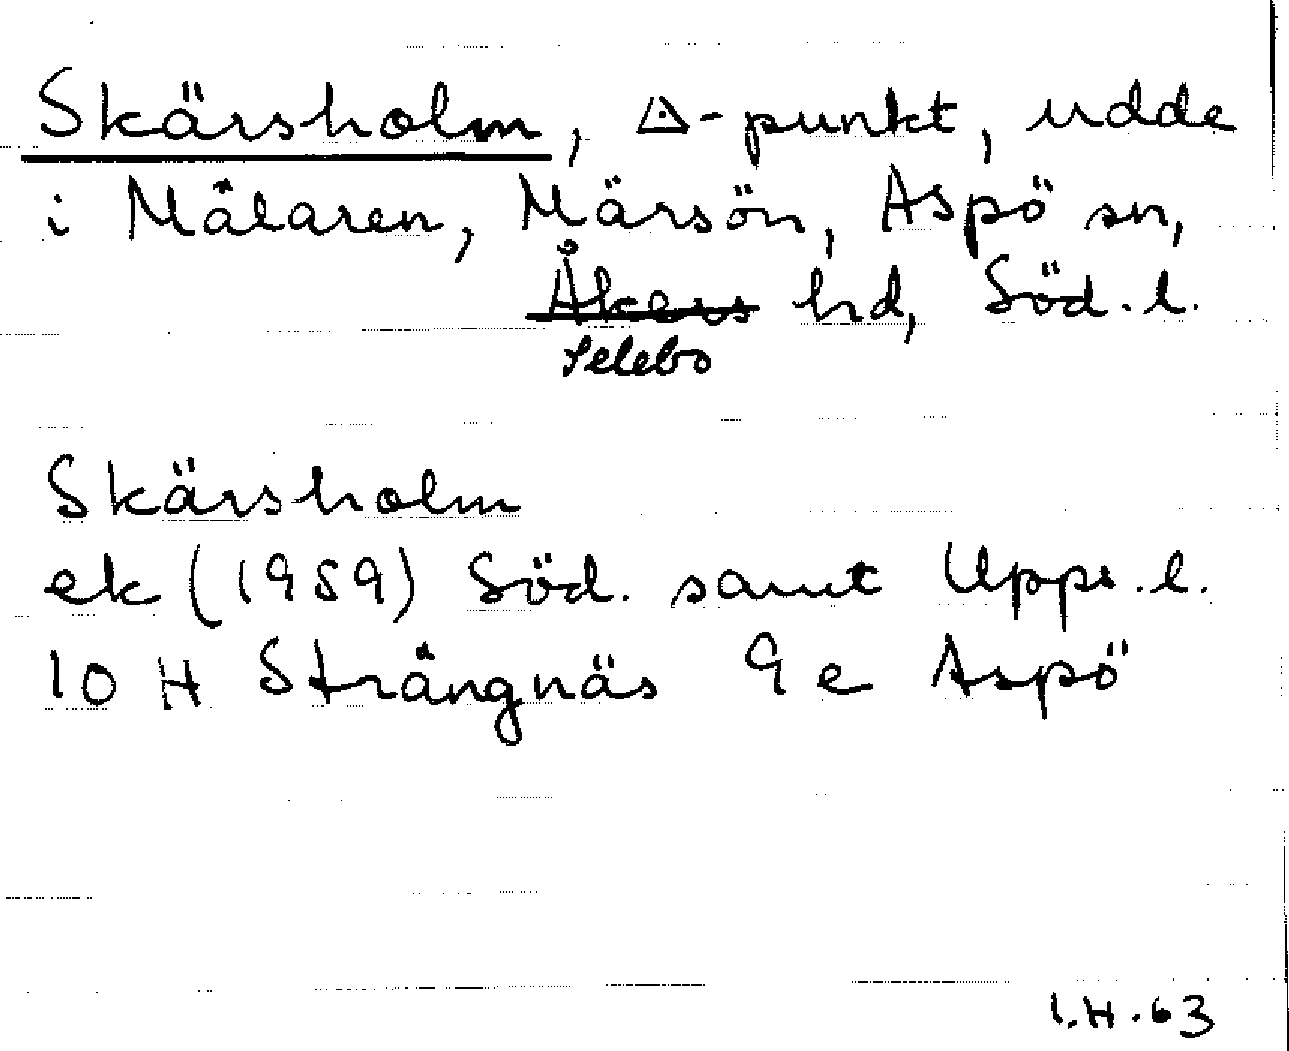 Skärsholm, △-punkt, udde
i Mälaren, Märsön, Aspö sn,
Åkers hd, Söd. l.
Selebo
Skärsholm
ek (1959) Söd. samt Upps. l.
10 H Strängnäs 9e Aspö
I.H. 63